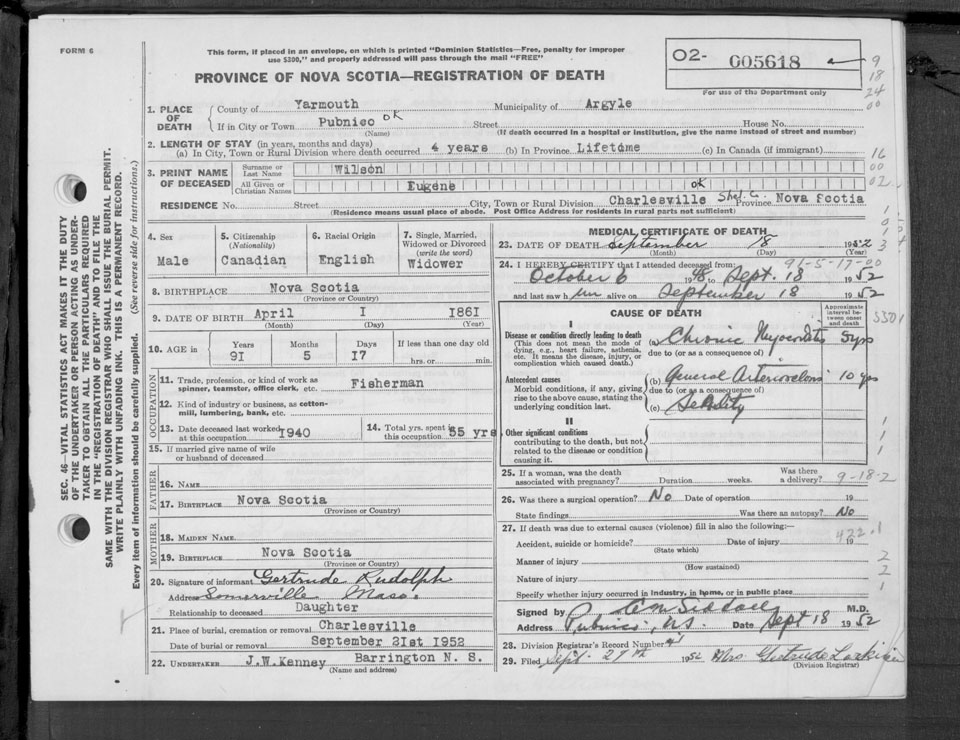 FORM 6
This form, if placed in an envelope, on which is printed "Dominion Statistics—Free, penalty for improper
use $300," and properly addressed will pass through the mail "FREE"
PROVINCE OF NOVA SCOTIA—REGISTRATION OF DEATH
O2- 005618
For use of the Department only
9
18
24
00
1. PLACE OF DEATH
County of Yarmouth Municipality of Argyle
If in City or Town Pubnico OK Street House No.
(Name) (If death occurred in a hospital or institution, give the name instead of street and number)
2. LENGTH OF STAY (in years, months and days)
(a) In City, Town or Rural Division where death occurred 4 years (b) In Province Lifetome (c) In Canada (if immigrant)
16
00
02
3. PRINT NAME OF DECEASED
Surname or Last Name Wilson
All Given or Christian Names Eugene
OK
RESIDENCE No. Street City, Town or Rural Division Charlesville Shel. C. Province Nova Scotia
(Residence means usual place of abode. Post Office Address for residents in rural parts not sufficient)
4. Sex
Male
5. Citizenship (Nationality)
Canadian
6. Racial Origin
English
7. Single, Married, Widowed or Divorced (write the word)
Widower
8. BIRTHPLACE Nova Scotia
(Province or Country)
9. DATE OF BIRTH April I I86I
(Month) (Day) (Year)
10. AGE in Years Months Days If less than one day old
9I 5 I7 hrs. or min.
OCCUPATION
11. Trade, profession, or kind of work as spinner, teamster, office clerk, etc. Fisherman
12. Kind of industry or business, as cotton-mill, lumbering, bank, etc.
13. Date deceased last worked at this occupation I940
14. Total yrs. spent in this occupation 55 yrs
15. If married give name of wife or husband of deceased
FATHER
16. NAME
17. BIRTHPLACE Nova Scotia
(Province or Country)
MOTHER
18. MAIDEN NAME
19. BIRTHPLACE Nova Scotia
(Province or Country)
20. Signature of informant Gertrude Rudolph
Address Somerville Mass.
Relationship to deceased Daughter
21. Place of burial, cremation or removal Charlesville
Date of burial or removal September 2Ist I952
22. UNDERTAKER J.W.Kenney Barrington N. S.
(Name and address)
MEDICAL CERTIFICATE OF DEATH
23. DATE OF DEATH September 18 1952
(Month) (Day) (Year)
91-5-17-00
24. I HEREBY CERTIFY that I attended deceased from:
October 6 1948 to Sept. 18 1952
and last saw him alive on September 18 1952
CAUSE OF DEATH
Approximate interval between onset and death
I
Disease or condition directly leading to death
(This does not mean the mode of dying, e.g., heart failure, asthenia, etc. It means the disease, injury, or complication which caused death.)
(a) Chronic Myocarditis 5 yrs
due to (or as a consequence of)
Antecedent causes
Morbid conditions, if any, giving rise to the above cause, stating the underlying condition last.
(b) General Arteriosclerosis 10 yrs
due to (or as a consequence of)
(c) Senility
II
Other significant conditions
contributing to the death, but not related to the disease or condition causing it.
25. If a woman, was the death associated with pregnancy? Duration weeks. Was there a delivery? 9-18-2
26. Was there a surgical operation? No Date of operation 19
State findings Was there an autopsy? No
27. If death was due to external causes (violence) fill in also the following:—
422.1
Accident, suicide or homicide? Date of injury 19
(State which)
Manner of injury
(How sustained)
Nature of injury
Specify whether injury occurred in industry, in home, or in public place
Signed by M.D.
Address Pubnico, N.S. Date Sept 18 1952
28. Division Registrar's Record Number
29. Filed Sept. 27th 1952 Mrs Gertrude Larkin
(Division Registrar)
SEC. 46—VITAL STATISTICS ACT MAKES IT THE DUTY
OF THE UNDERTAKER OR PERSON ACTING AS UNDER-
TAKER TO OBTAIN ALL THE PARTICULARS REQUIRED
IN THE "REGISTRATION OF DEATH" AND TO FILE THE
SAME WITH THE DIVISION REGISTRAR WHO SHALL ISSUE THE BURIAL PERMIT.
WRITE PLAINLY WITH UNFADING INK. THIS IS A PERMANENT RECORD.
Every item of information should be carefully supplied. (See reverse side for instructions.)